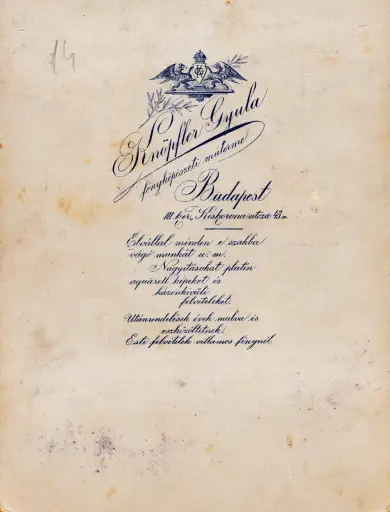 14
Knöpfler Gyula
fényképészeti műterme
Budapest
III. ker. Kiskorona-utcza 43
Elvállal minden e szakba
vágó munkát u. m.
Nagyitásokat platin
aquarell képeket és
házonkivüli
felvételeket.
Utánrendelések évek mulva is
eszközöltetnek.
Esti felvételek villamos fénynél.